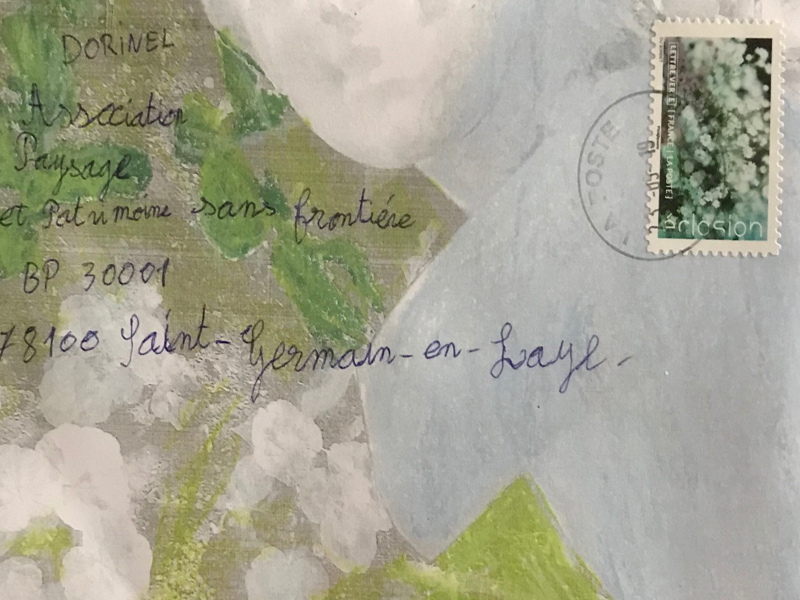 DORINEL
Association
Paysage
et Patrimoine sans frontiére
BP 30001
78100 Saint-Germain-en-Laye.
LA POSTE
LETTRE VERTE FRANCE LA POSTE
éclosion